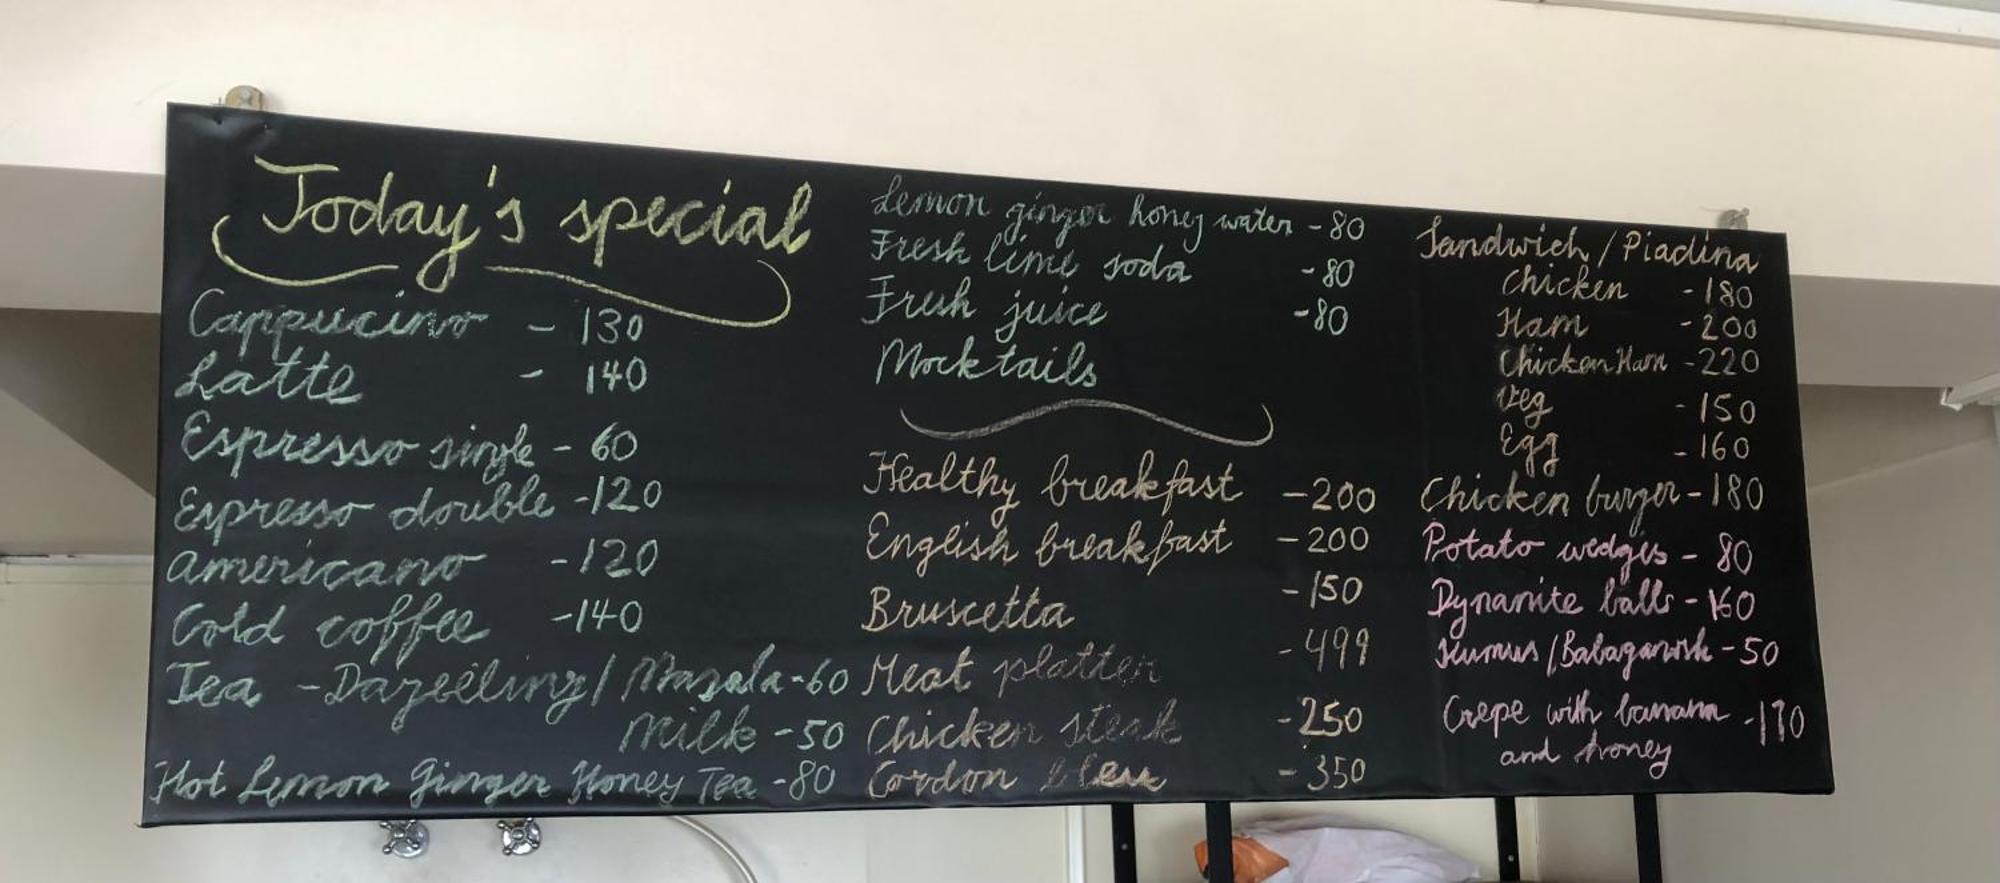 Today's special
Cappucino - 130
Latte - 140
Espresso single - 60
Espresso double - 120
Americano - 120
Cold coffee - 140
Tea - Darjeeling / Masala - 60
Milk - 50
Hot Lemon Ginger Honey Tea - 80
Lemon ginger honey water - 80
Fresh lime soda - 80
Fresh juice - 80
Mocktails
Healthy breakfast - 200
English breakfast - 200
Bruscetta - 150
Meat platter - 499
Chicken steak - 250
Cordon bleu - 350
Sandwich / Piadina
Chicken - 180
Ham - 200
Chicken Ham - 220
Veg - 150
Egg - 160
Chicken burger - 180
Potato wedges - 80
Dynamite balls - 160
Humus / Babaganosh - 50
Crepe with banana
and honey